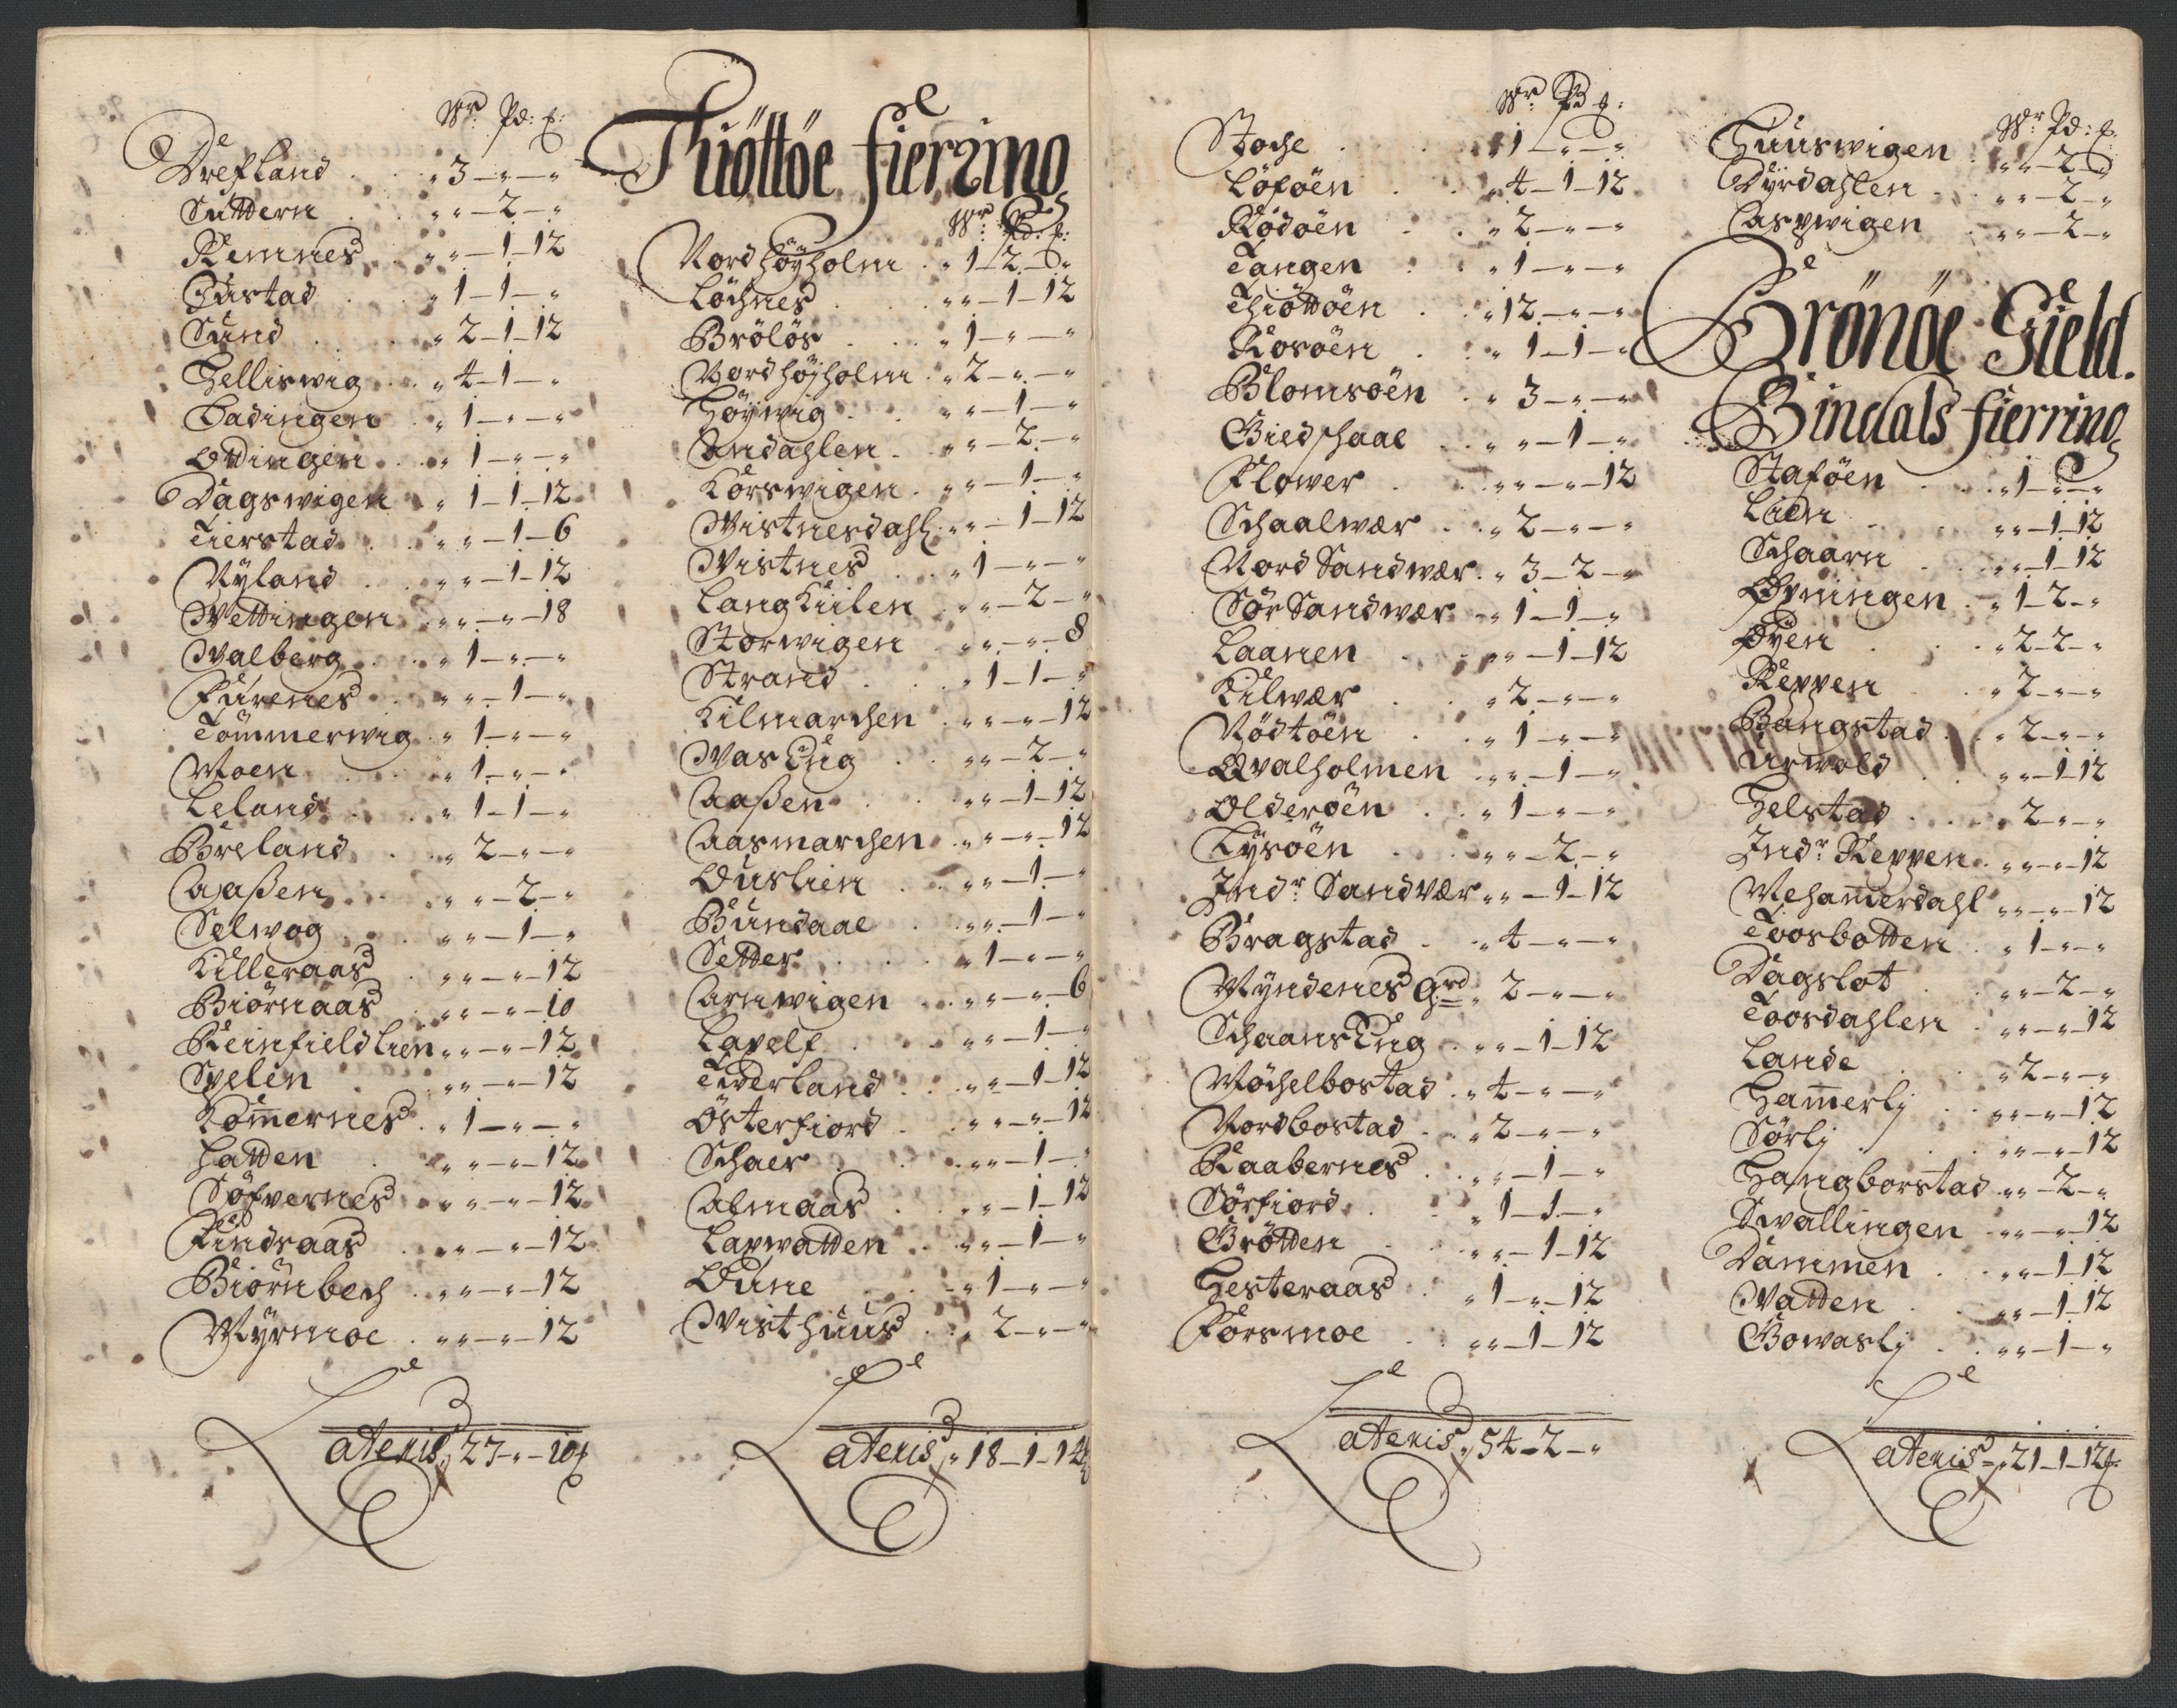 Wr Pd: £:
Drefland . „ 3 – „ – „
Suttern . „ „ – 2 – „
Remnes . „ „ – 1 – 12
Hustad . „ 1 – 1 – „
Sund . „ 2 – 1 – 12
Helliswig . „ 4 – 1 – „
Badingen . „ 1 – „ – „
Oddingen . „ 1 – „ – „
Dagswigen . „ 1 – 1 – 12
Tierstad . „ „ – 1 – 6
Nÿland . „ „ – 1 – 12
Wettingen . „ „ – „ – 18
Walberg . „ 1 – „ – „
Furenes . „ „ – 1 – „
Tömmerwig . „ 1 – „ – „
Moen . „ 1 – „ – „
Leland . „ 1 – 1 – „
Breland . „ 2 – „ – „
Aaßen . „ „ – 2 – „
Selwog . „ „ – 1 – „
Killeraas . „ „ – „ – 12
Biörnaas . „ „ – „ – 10
Reinfieldlien „ „ – „ – 12
Spelen . „ „ – „ – 12
Kom̅ernes . „ 1 – „ – „
Hatten . „ „ – „ – 12
Söfvernes . „ „ – „ – 12
Findsaas . „ „ – „ – 12
Biörnbech . „ „ – „ – 12
Mÿrmoe . „ „ – „ – 12
Lateris „ 27 – „ – 10 £
Thiöttöe fierring
Wr Pd: £:
Nord höÿholm . „ 1 – 2 – „
Löchnes . „ „ – 1 – 12
Brölös . „ 1 – „ – „
Nord höÿholm . „ 2 – „ – „
Höÿwig . „ „ – 1 – „
Andahlen . „ „ – 2 – „
Korswigen . „ „ – 1 – „
Wistnesdahl . „ „ – 1 – 12
Wistnes . „ 1 – „ – „
Lang Kiilen . „ „ – 2 – „
Storwigen . „ „ – „ – 8
Strand . „ 1 – 1 – „
Kilmarchen . „ „ – „ – 12
Was Eng . „ „ – 2 – „
Aaßen . „ „ – 1 – 12
Aasmarchen . „ „ – „ – 12
Ouslien . „ „ – 1 – „
Bundaal . „ „ – 1 – „
Setter . „ 1 – „ – „
Arnwigen . „ „ – „ – 6
Lapelf . „ „ – 1 – „
Tverland . „ „ – 1 – 12
Österfiord . „ „ – „ – 12
Schaer . „ „ – 1 – „
Almaas . „ „ – 1 – 12
Lapwatten . „ „ – 1 – „
Oune . „ 1 – „ – „
Wisthuus . „ 2 – „ – „
Lateris „ 18 – 1 – 14 £
Wr Pd £:
Stoche . „ 1 – „ – „
Löföen . „ 4 – 1 – 12
Rödöen . „ 2 – „ – „
Tangen . „ 1 – „ – „
Thiöttöen . „ 12 – „ – „
Rosöen . „ 1 – 1 – „
Blomsöen . „ 3 – „ – „
Giedschaal . „ „ – 1 – „
Flower . „ „ – „ – 12
Schaalwær . „ 2 – „ – „
Nord Sandwær . „ 3 – 2 – „
Sör Sandwær „ 1 – 1 – „
Laanen . „ „ – 1 – 12
Kilwær . „ 2 – „ – „
Rödtöen . „ 1 – „ – „
Qvalholmen . „ „ – 1 – „
Olderöen . „ 1 – „ – „
Tÿsöen . „ „ – 2 – „
Indr Sandvær „ „ – 1 – 12
Bragstad . „ 4 – „ – „
Mÿndenes Grd „ 2 – „ – „
Schaans Eng . „ „ – 1 – 12
Möchelbostad . „ 4 – „ – „
Nordbostad . „ 2 – „ – „
Raabernes . „ „ – 1 – „
Sörfiord . „ 1 – 1 – „
Grötten . „ „ – 1 – 12
Hesteraas . „ 1 – „ – 12
Forsmoe . „ „ – 1 – 12
Lateris „ 54 – 2 – „
Wr Pd: £:
Huuswigen . „ „ – 2 – „
Dÿrdahlen . „ „ – 2 – „
Caspwigen . „ „ – 2 – „
Brönöe Gield.
Bindals fierring
Staföen . „ 1 – „ – „
Lien . „ „ – 1 – 12
Schaarn . „ „ – 1 – 12
Øvningen . „ 1 – 2 – „
Øyen . „ 2 – 2 – „
Reppen . „ 2 – „ – „
Bangstad . „ 2 – „ – „
Urwold . „ „ – 1 – 12
Helstad . „ 2 – „ – „
Indr Reppen . „ „ – „ – 12
Weham̅erdahl „ „ – „ – 12
Toosbotten . „ 1 – „ – „
Dagslot . „ „ – 2 – „
Toosdahlen . „ „ – „ – 12
Lande . „ 2 – „ – „
Ham̅erlj . „ „ – „ – 12
Sörlj . „ „ – „ – 12
Hangborstad „ „ – 2 – „
Swallingen . „ „ – „ – 12
Dammen . „ „ – 1 – 12
Watten . „ „ – 1 – 12
Gowaslj . „ „ – 1 – „
Lateris „ 21 – 1 – 12 £